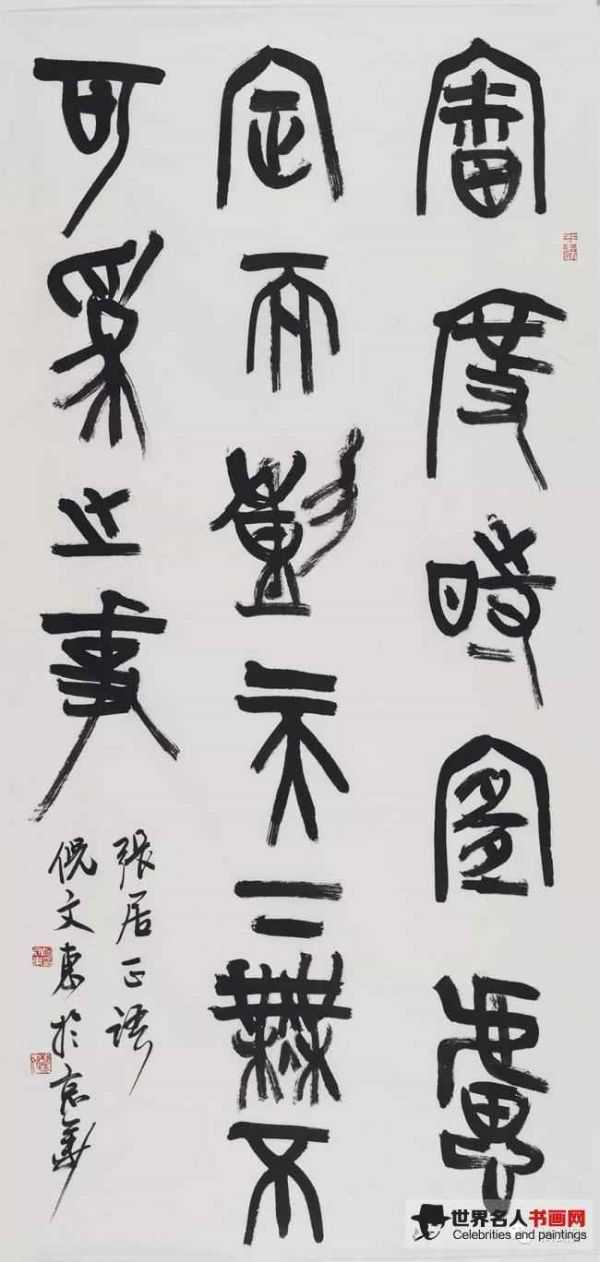 審度時宜慮
定而動天下無不
可爲之事
張居正語
倪文東於京華
世界名人书画网
Celebrities and paintings